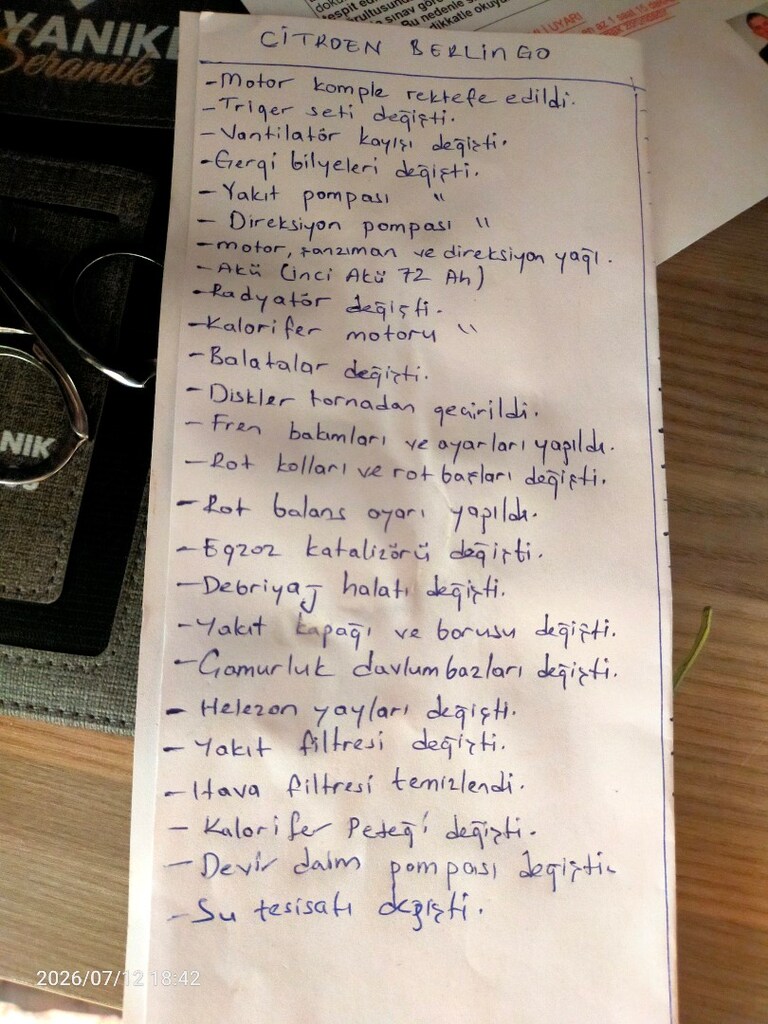 YANIK
Seramik
NIK
UYARI
CİTROEN BERLİNGO
-Motor komple rektefe edildi.
-Triger seti değişti.
-Vantilatör kayışı değişti.
-Gergi bilyeleri değişti.
-Yakıt pompası "
- Direksiyon pompası "
-motor, şanzıman ve direksiyon yağı.
-Akü (inci Akü 72 Ah)
-Radyatör değişti.
-Kalorifer motoru "
-Balatalar değişti.
- Diskler tornadan geçirildi.
- Fren bakımları ve ayarları yapıldı.
-Rot kolları ve rot başları değişti.
- Rot balans ayarı yapıldı.
- Egzoz katalizörü değişti.
- Debriyaj halatı değişti.
- Yakıt kapağı ve borusu değişti.
-Çamurluk davlumbazları değişti.
- Helezon yayları değişti.
- Yakıt filtresi değişti.
- Hava filtresi temizlendi.
- Kalorifer Peteği değişti.
- Devir daim pompası değişti.
- Su tesisatı değişti.
2026/07/12 18:42